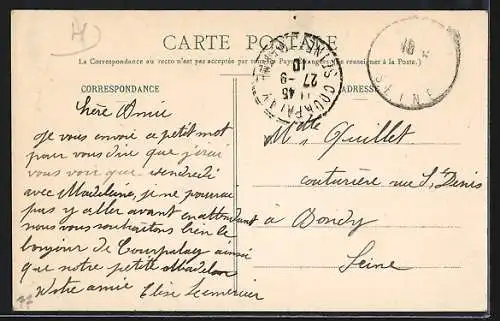 CARTE POSTALE
La Correspondance au recto n'est pas acceptée par tous les Pays Étrangers (Se renseigner à la Poste.)
CORRESPONDANCE
ADRESSE
COURPALAY
SEINE
11 45
27 -9
10
Chère Amie
Je vous envoie ce petit mot
pour vous dire que j'irai
vous voir que vendredi
avec Madelaine, je ne pourrai
pas y aller avant en attendant
nous vous souhaitons bien le
bonjour de Courpalay ainsi
que notre petite Madelon
Votre amie Elise Lemercier
Mlle Quillet
couturière rue St Denis
à Bondy
Seine